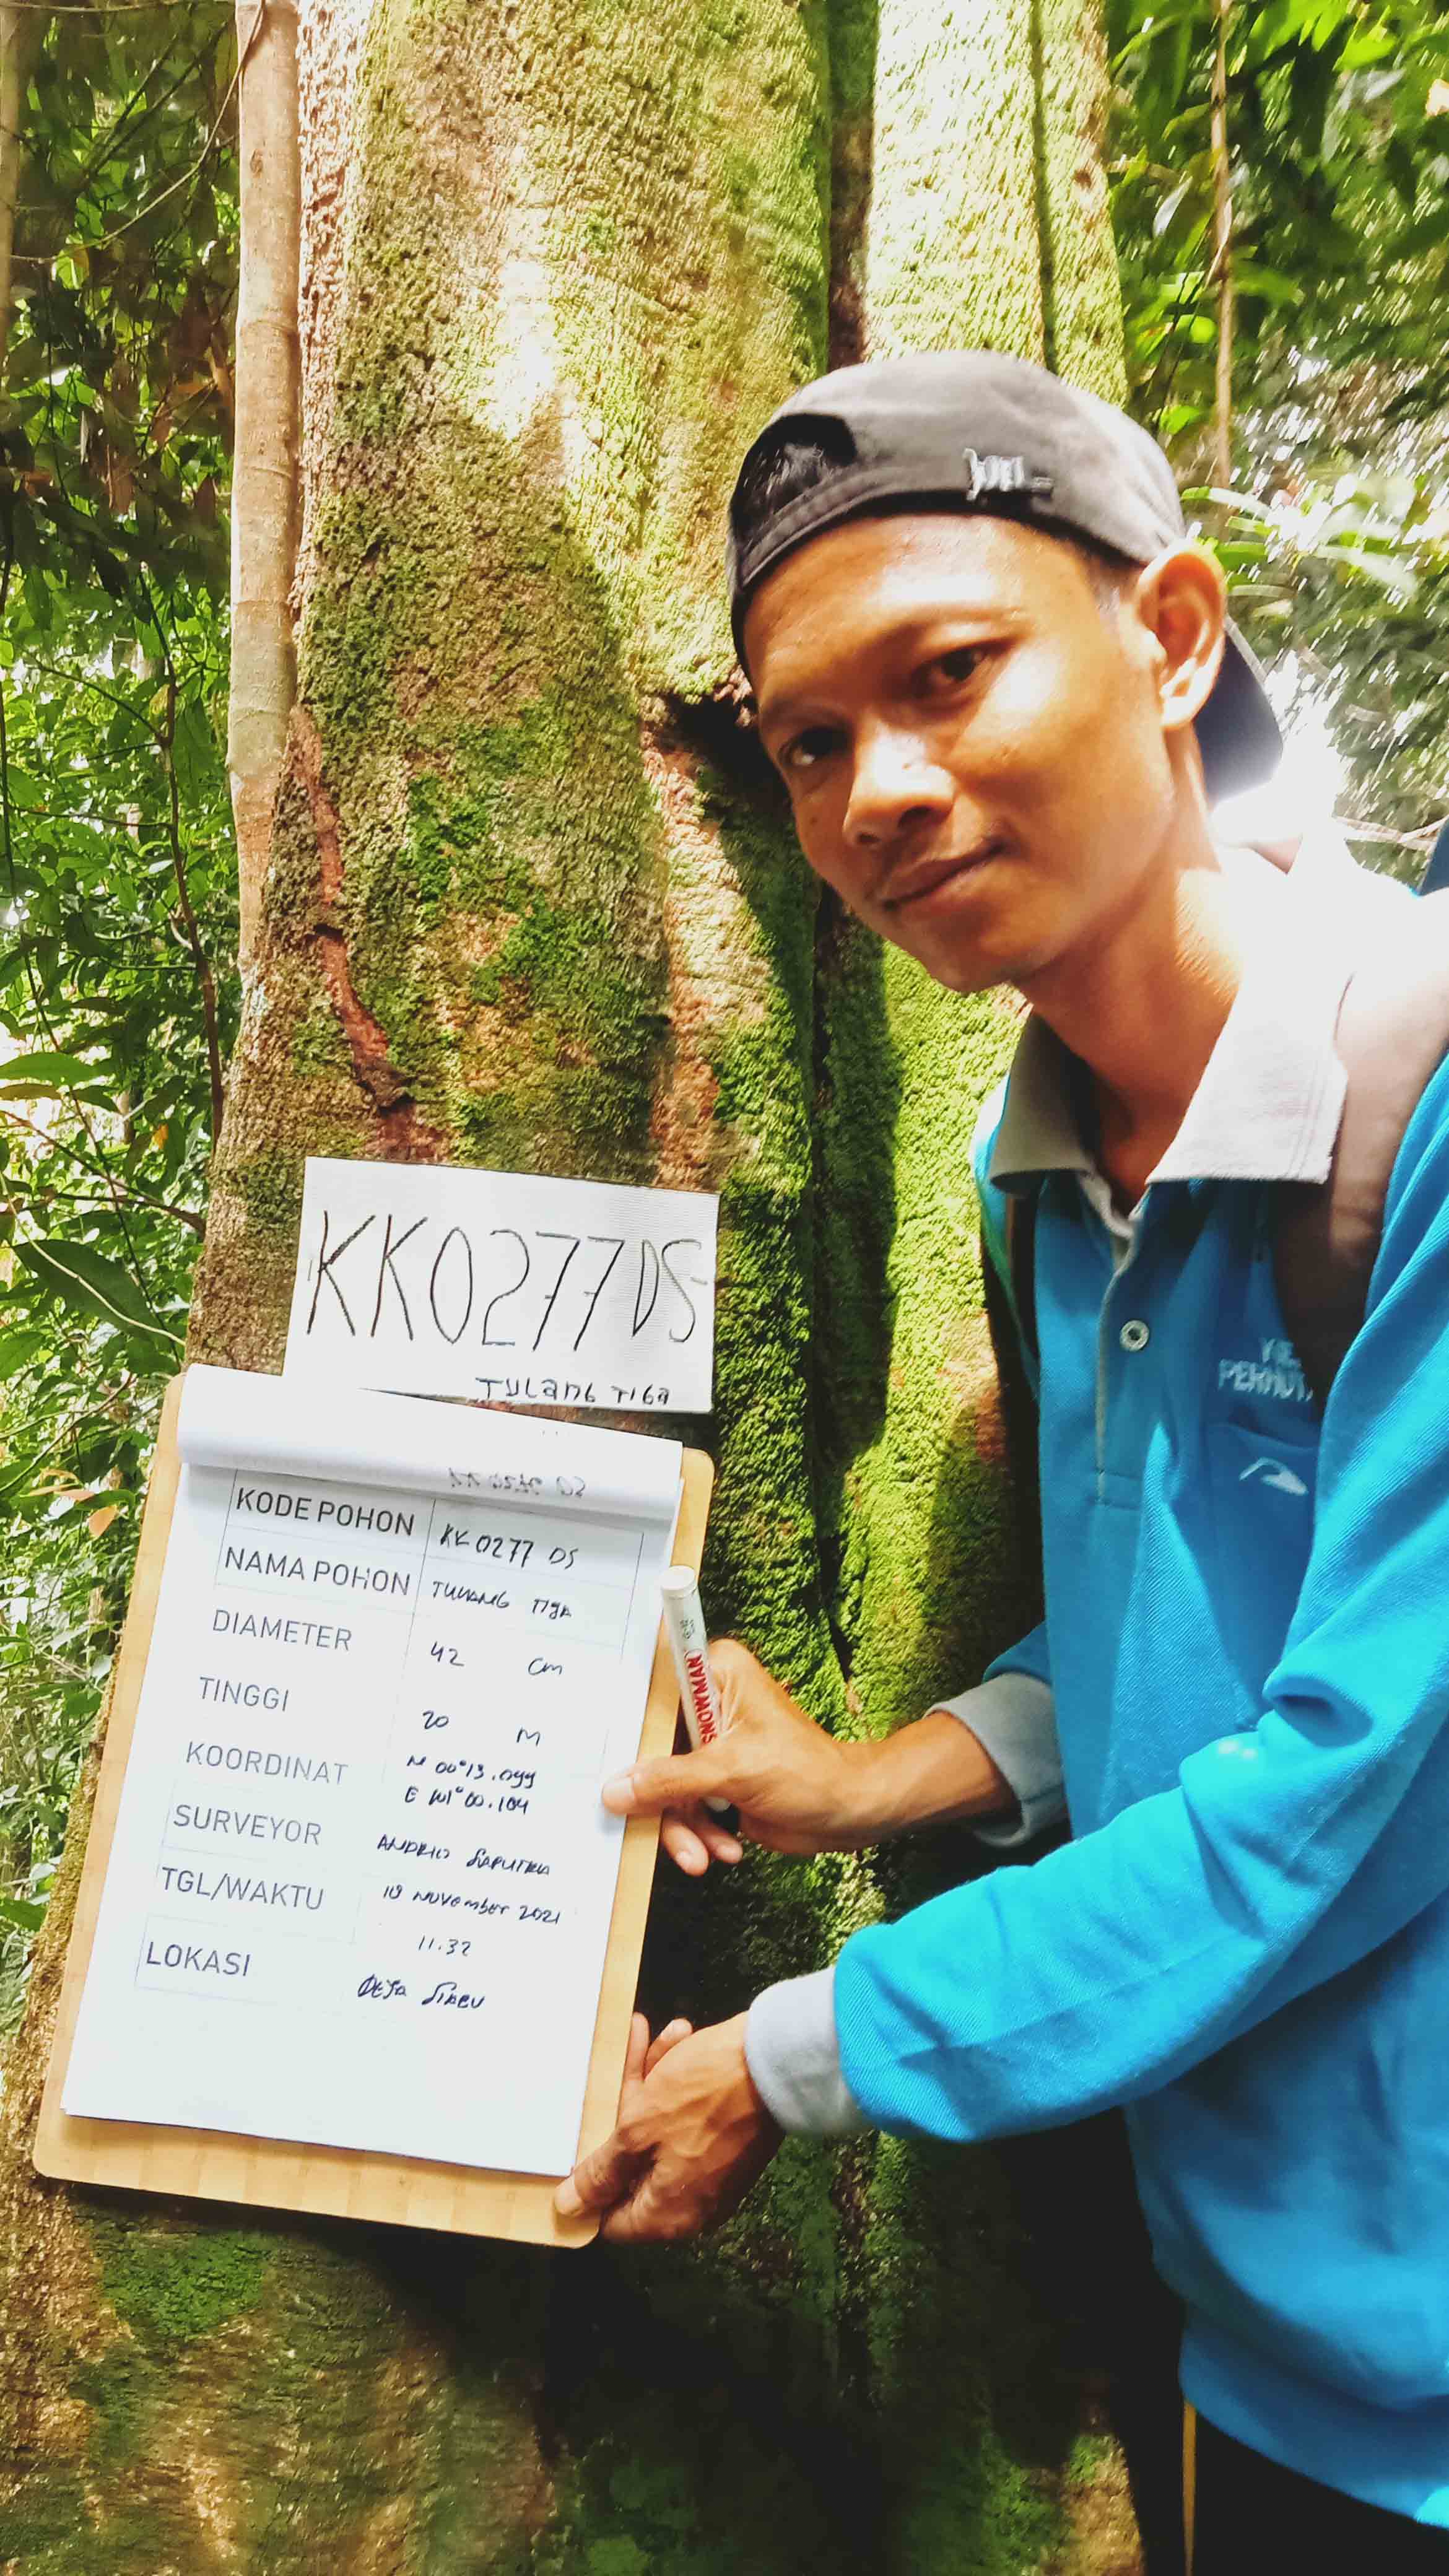 KK0277DS
TULANG TIGA
KODE POHON KK 0277 DS
NAMA POHON TULANG TIGA
DIAMETER 42 cm
TINGGI 20 M
KOORDINAT N 00°13.099
E 101°00.104
SURVEYOR ANDRIO SAPUTRA
TGL/WAKTU 18 November 2021
11.32
LOKASI DESA SIABU
SNOWMAN